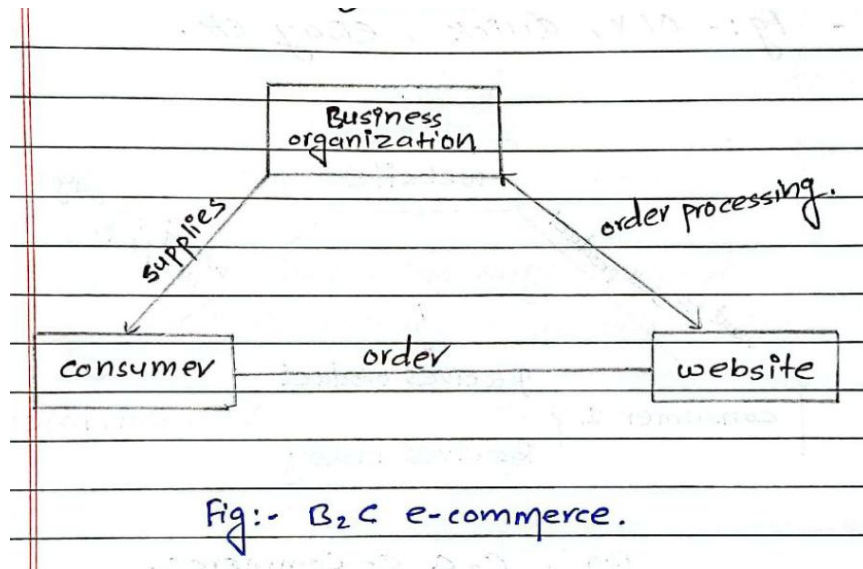 Business
organization
supplies
order processing.
consumer
order
website
Fig:- B2C e-commerce.